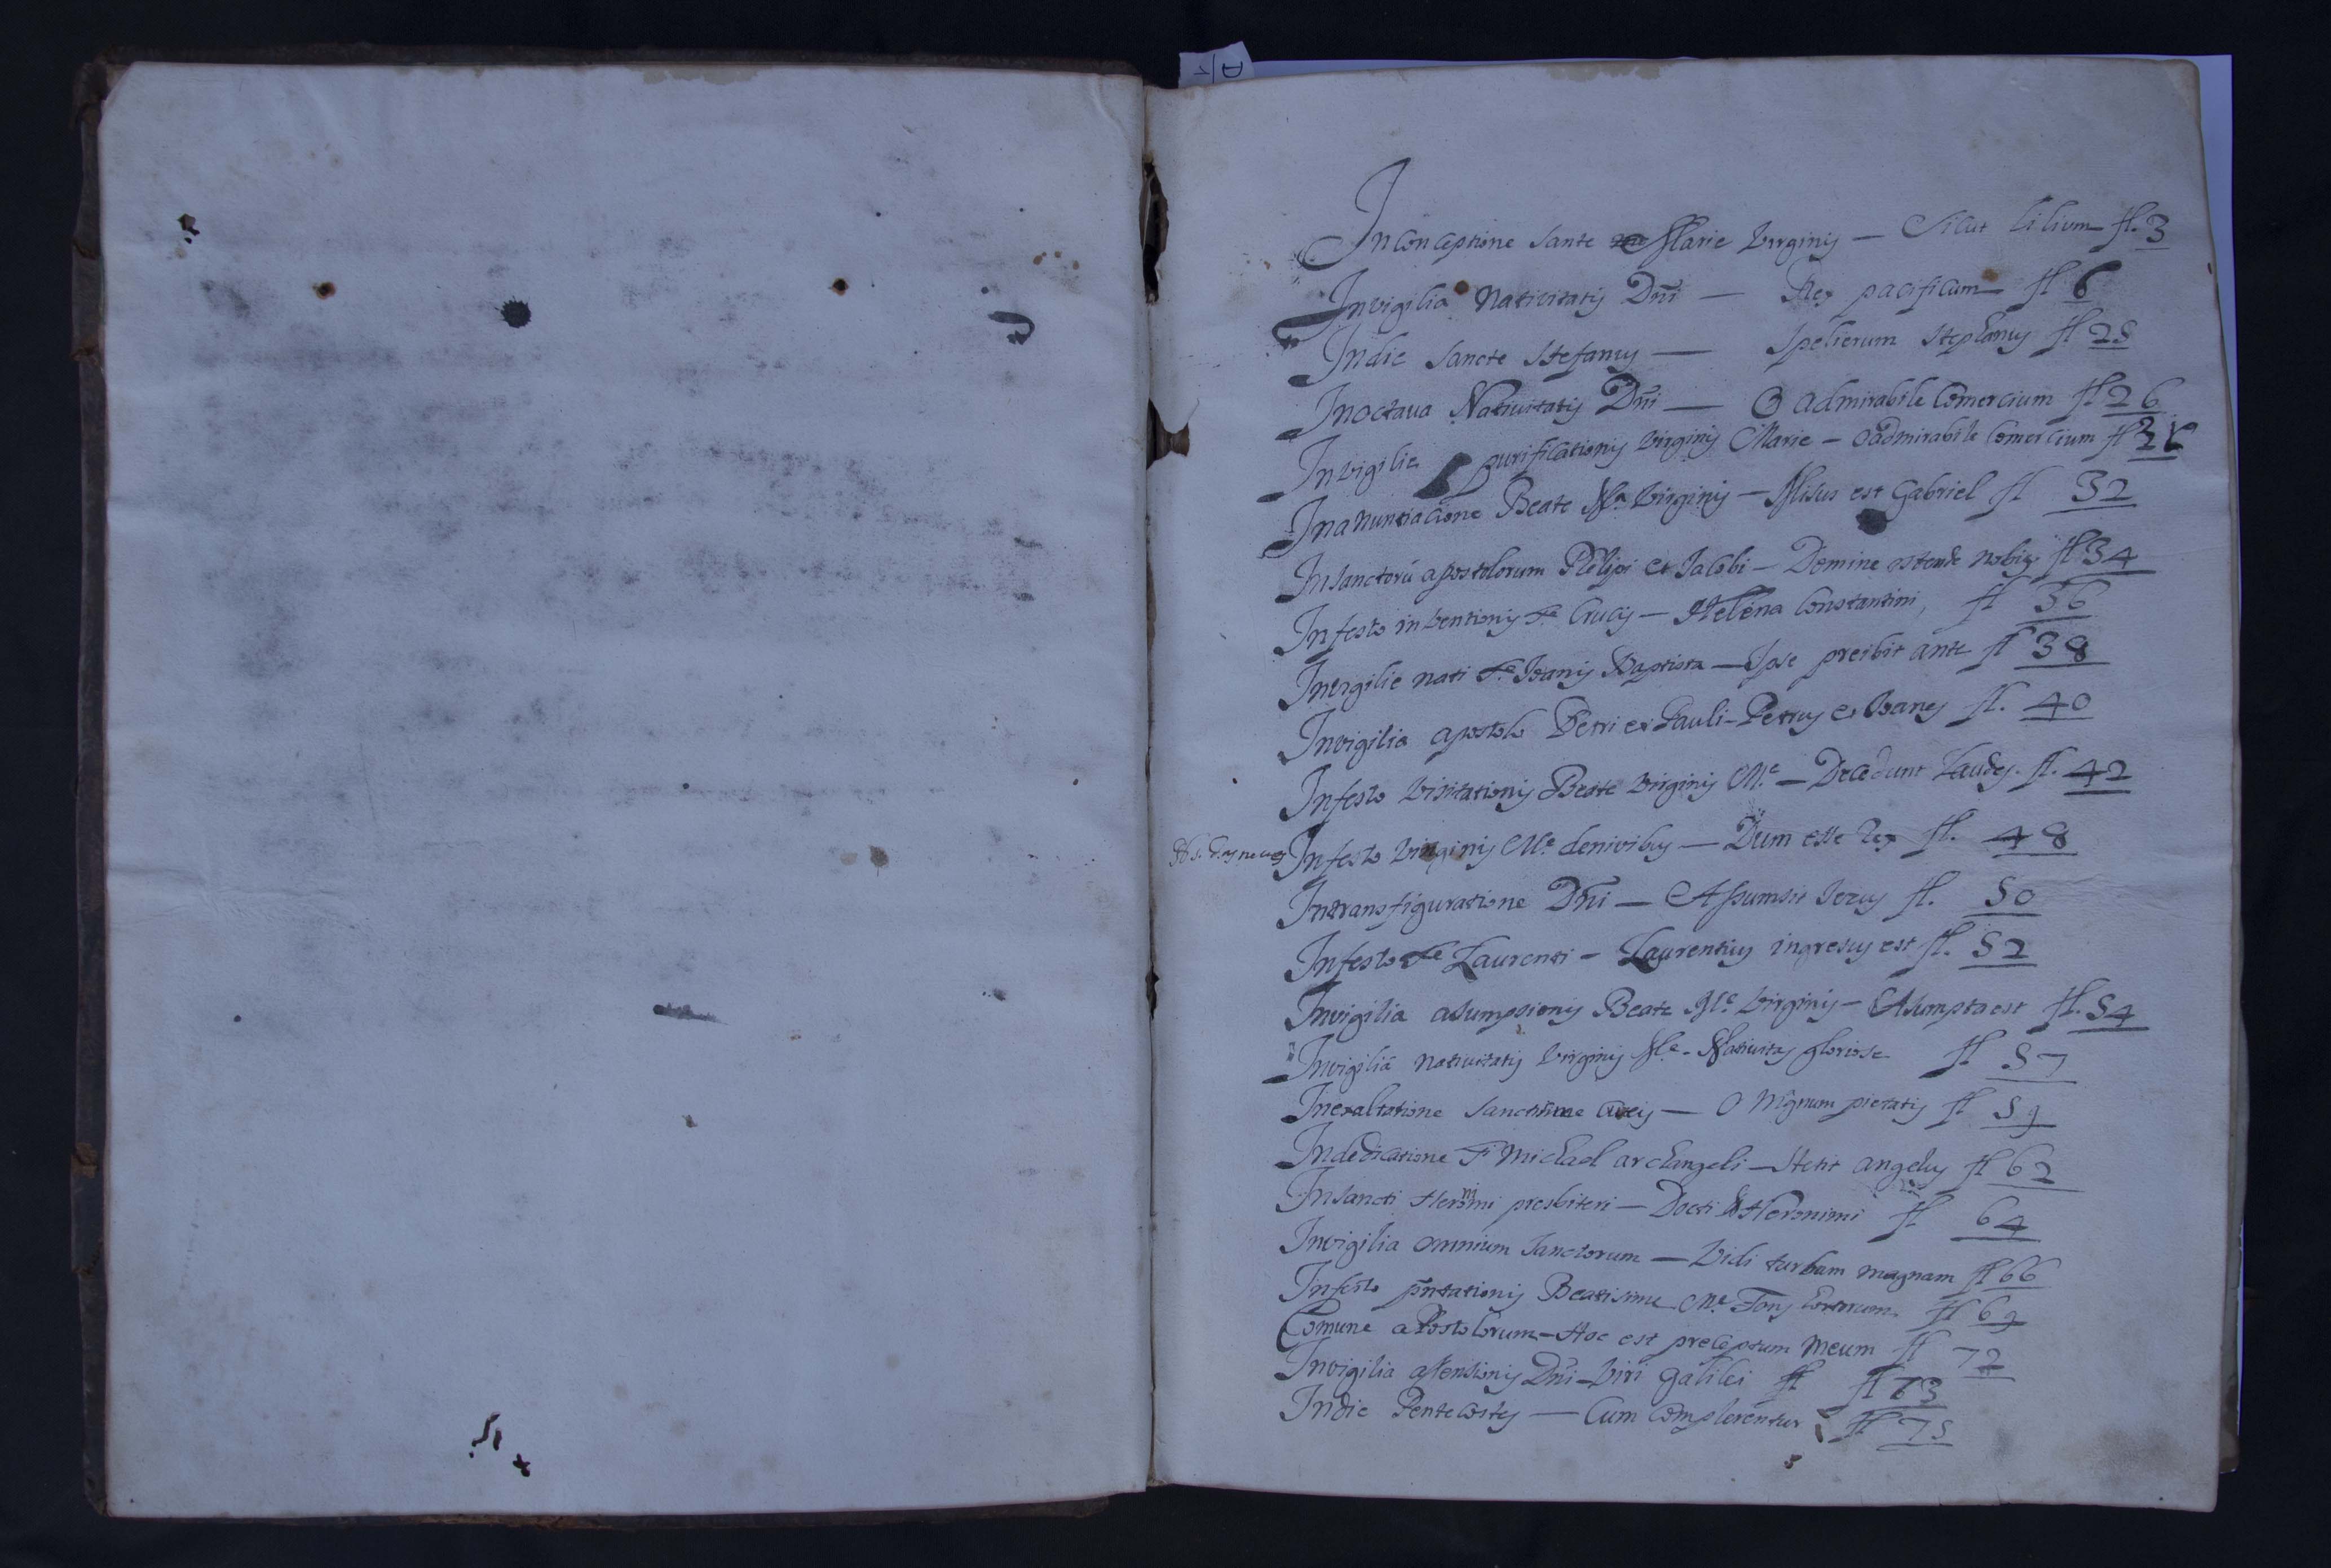 In conceptione sante Marie virginis — Sicut lilium fl. 3
Invigilia Nativitatis Dñi — Rex pacificum fl 6
Indie sancte Stefanus — Spelierum Stephanus fl 25
Inoctaua Natiuitatis Dñi — O admirabile Comercium fl 26
Invigilie purificationis virginis Marie — o admirabile Comercium fl
Inanuntiacione Beate Mª Virginis — Misus est Gabriel fl 32
Insanctorũ apostolorum Phelipi et Jacobi — Domine ostende nobis fl 34
Infesto inventionis Crucis — Helena Constantini, fl 36
Invigilie nati Joanis Baptista — Ipse preibit ante fl 38
Invigilia apostolo Petri et Pauli — Petrus et Joanes fl. 40
Infesto Visitationis Beate Virginis Mᵉ — Decedunt Laudes fl. 42
Infesto Virginis Mᵉ denivibus — Dum esse Rex fl. 48
Intransfiguratione Dñi — Assumsit Jezus fl. 50
Infesto Laurenti — Laurentius ingresus est fl. 52
Invigilia asumpsionis Beate Mᵉ Virginis — Asumpta est fl. 54
Invigilia natiuitatis Virginis Mᵉ — Natiuitas gloriose fl 57
Inexaltatione Sanctisime Crucis — O Mignum pietatis fl 59
Indedicatione Michael archangeli — Stetit angelus fl 62
Insancti Heronimi presbiteri — Docti Heronimi fl 64
Invigilia omnium Sanctorum — Vidi turbam magnam fl 66
Infesto pñtationis Beatisime Mᵉ Fons hortorum fl 69
Comune apostolorum — Hoc est preceptum meum fl 72
Invigilia assensionis Dñi — Viri galilei fl fl 73
Indie Pentecostes — Cum Complerentur fl 75